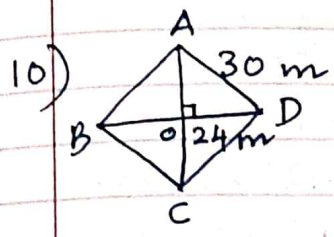 10)
A
30 m
B
O 24 m
D
C